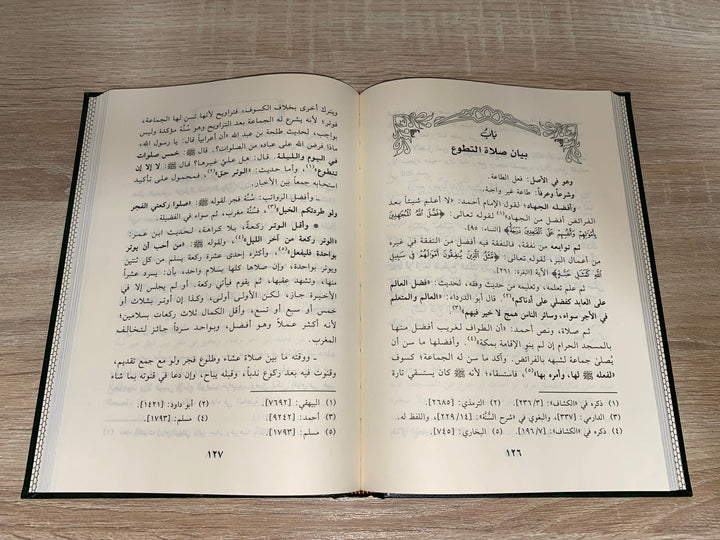 بَابُ
بيان صلاة التطوع
وهو في الأصل: فعل الطاعة.
وشرعاً وعرفاً: طاعة غير واجبة.
وأفضله الجهاد؛ لقوله الإمام أحمد: «لا أعلم شيئاً بعد
الفرائض أفضل من الجهاد»(١) لقوله تعالى: ﴿فَضَّلَ اللَّهُ الْمُجَاهِدِينَ
بِأَمْوَالِهِمْ وَأَنفُسِهِمْ عَلَى الْقَاعِدِينَ دَرَجَةً﴾ (النساء: ٩٥).
ثم توابعه من نفقة، فالنفقة فيه أفضل من النفقة في غيره
من أعمال البر، لقوله تعالى: ﴿مَثَلُ الَّذِينَ يُنفِقُونَ أَمْوَالَهُمْ فِي سَبِيلِ
اللَّهِ كَمَثَلِ حَبَّةٍ﴾ الآية [البقرة: ٢٦١].
ثم علم تعلمه، وتعليمه من حديث وفقه، لحديث: «فضل العالم
على العابد كفضلي على أدناكم»(٢)، قال أبو الدرداء: «العالم والمتعلم
في الأجر سواء، وسائر الناس همج لا خير فيهم»(٣).
ثم صلاة، ونص أحمد: أن الطواف لغريب أفضل منها
بالمسجد الحرام إن لم ينو الإقامة بمكة(٤). وأفضلها ما سن أن
يُصلى جماعة لشبهه بالفرائض. وآكد ما سن له الجماعة: كسوف
«لفعله ﷺ لها، وأمره بها»(٥)، فاستسقاء؛ لأنه ﷺ كان يستسقي تارة
(١) ذكره في «الكشاف»: [٢٣٦/٣]. (٢) الترمذي: [٢٦٨٥].
(٣) الدارمي: [٣٣٧]، والبغوي في «شرح السُّنَّة»: [٢٢٩/١٤]، واللفظ له.
(٤) ذكره في «الكشاف»: [١٩٦/٧]. (٥) البخاري: [٧٤٥].
١٢٦
ويترك أخرى بخلاف الكسوف، فتراويح لأنها تسن لها الجماعة،
فوتر؛ لأنه يشرع له الجماعة بعد التراويح وهو سُنَّة مؤكدة وليس
بواجب، لحديث طلحة بن عبد الله «أن أعرابياً قال: يا رسول الله،
ماذا فرض الله على عباده من الصلوات؟. قال ﷺ: خمس صلوات
في اليوم والليلة. قال: هل عليَّ غيرها؟ قال ﷺ: لا إلا إن
تتطوع»(١)، وأما حديث: «الوتر حق»(٢)، فمحمول على تأكيد
استحبابه جمعاً بين الأخبار.
ـ وأفضل الرواتب: سُنَّة فجر لقوله ﷺ: «صلوا ركعتي الفجر
ولو طردتكم الخيل»(٣)، فسُنَّة مغرب، ثم سواء في الفضيلة.
● وأقل الوتر ركعةٌ، بلا كراهة، لحديث ابن عمر:
«الوتر ركعة من آخر الليل»(٤)، ولقوله ﷺ: «من أحب أن يوتر
بواحدة فليفعل»(٥)، وأكثره إحدى عشرة ركعة يسلم من كل ثنتين
ويوتر بواحدة، وإن صلاها كلها بسلام واحد، بأن: يسرد عشراً
منها، وتشهد عقبها، ثم يقوم فيأتي ركعة، أو لم يجلس إلا في
الأخيرة جاز، لكن الأولى أولى، وكذا إن أوتر بثلاث أو
خمس أو سبع أو تسع، وأقل الكمال ثلاث ركعات بسلامين؛
لأنه أكثر عملاً وهو أفضل، وبواحد سرداً جائز لتخالف
المغرب.
ـ ووقته ما بين صلاة عشاء وطلوع فجر ولو مع جمع تقديم،
وقنوت فيه بعد ركوع ندباً، وقبله يباح، وإن دعا في قنوته بما شاء
(١) البيهقي: [٧٦٩٢]. (٢) أبو داود: [١٤٢١].
(٣) أحمد: [٩٢٤٢]. (٤) مسلم: [١٧٩٣].
(٥) مسلم: [١٧٩٣].
١٢٧